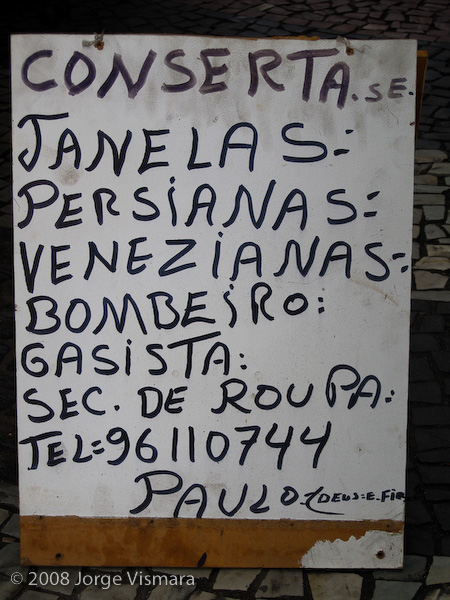 CONSERTA.SE.
JANELAS=
PERSiANAS=
VENEZiANAS=
BOMBEiRO:
GASiSTA:
SEC. DE ROUPA:
TEL=96110744
PAULO. DEUS=E.Fi
© 2008 Jorge Vismara